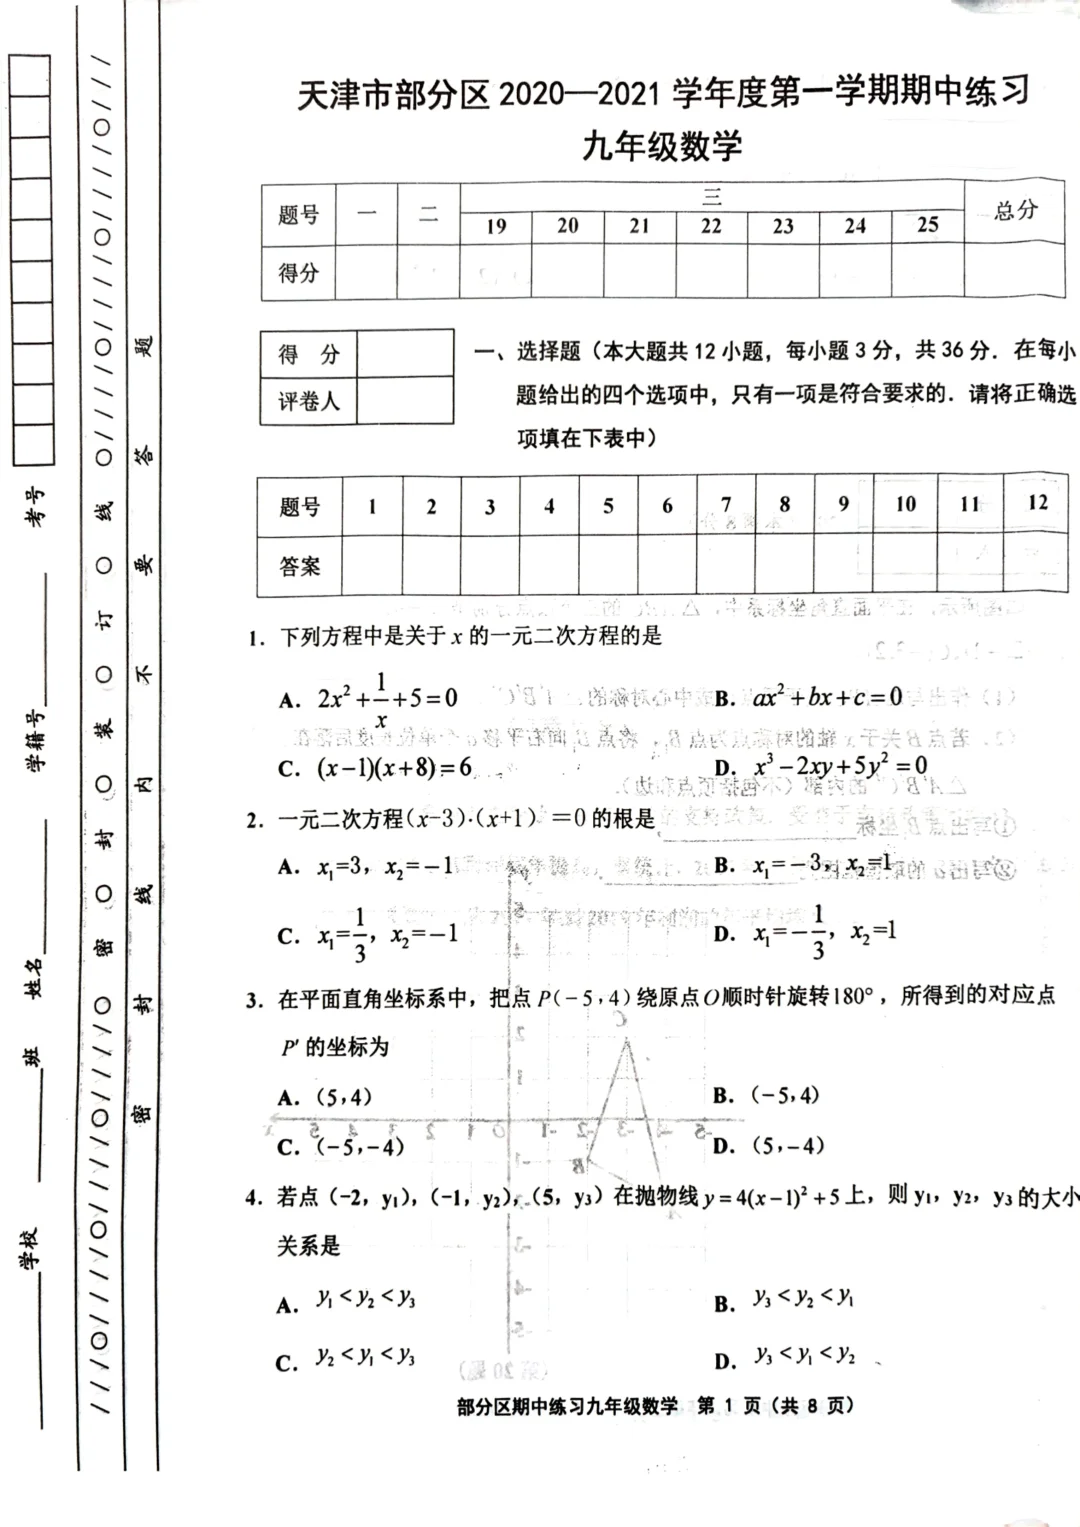 天津市部分区2020—2021学年度第一学期期中练习
九年级数学
题号 一 二 三 总分
19 20 21 22 23 24 25
得分
得 分
评卷人
一、选择题（本大题共12小题，每小题3分，共36分．在每小
题给出的四个选项中，只有一项是符合要求的．请将正确选
项填在下表中）
题号 1 2 3 4 5 6 7 8 9 10 11 12
答案
1．下列方程中是关于 x 的一元二次方程的是
A．2x²+1/x+5=0 B．ax²+bx+c=0
C．(x−1)(x+8)=6 D．x³−2xy+5y²=0
2．一元二次方程(x−3)·(x+1)=0的根是
A．x₁=3，x₂=−1 B．x₁=−3，x₂=1
C．x₁=1/3，x₂=−1 D．x₁=−1/3，x₂=1
3．在平面直角坐标系中，把点P(−5,4)绕原点O顺时针旋转180°，所得到的对应点
P′的坐标为
A．(5,4) B．(−5,4)
C．(−5,−4) D．(5,−4)
4．若点（-2，y₁），（-1，y₂），（5，y₃）在抛物线y=4(x−1)²+5上，则y₁，y₂，y₃的大小
关系是
A．y₁<y₂<y₃ B．y₃<y₂<y₁
C．y₂<y₁<y₃ D．y₃<y₁<y₂
部分区期中练习九年级数学 第 1 页（共 8 页）
学校 班 姓名 学籍号 考号
密 封 装 订 线
密 封 线 内 不 要 答 题